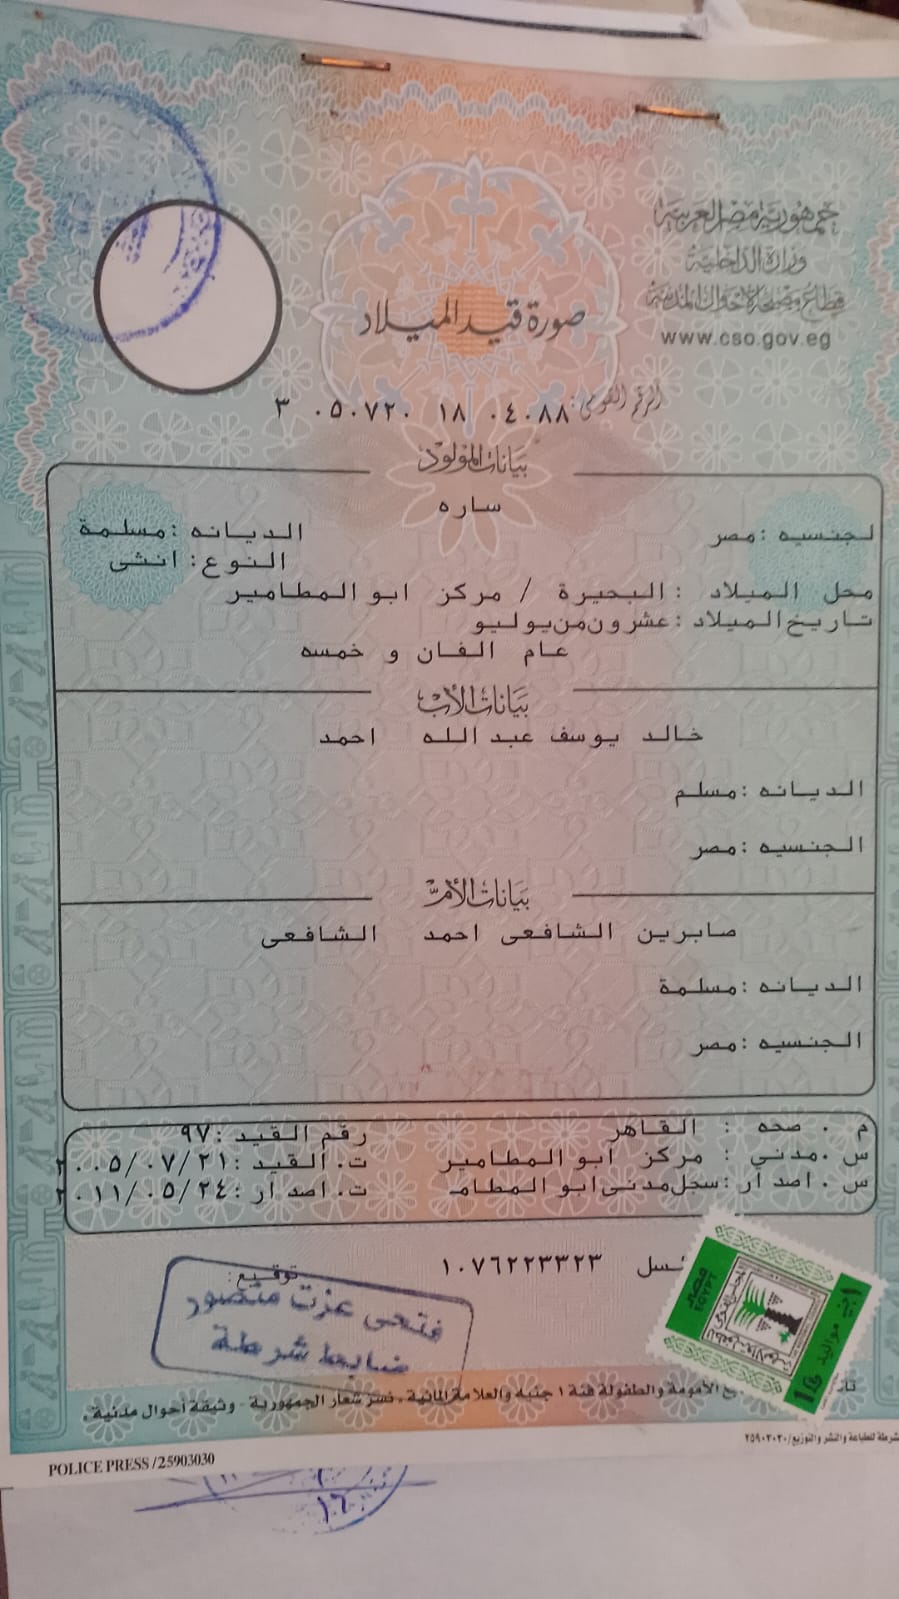 جمهورية مصر العربية
وزارة الداخلية
قطاع مصلحة الأحوال المدنية
www.cso.gov.eg
صورة قيد الميلاد
الرقم القومى:
٣ ٠٥٠٧٢٠ ١٨ ٠٤٠٨٨
بيانات المولود
ساره
لجنسيه :مصر الديانه :مسلمة
النوع: انثى
محل الميلاد : البحيرة / مركز ابو المطامير
تاريخ الميلاد :عشرون من يوليو
عام الفان و خمسه
بيانات الأب
خالد يوسف عبد الله احمد
الديانه :مسلم
الجنسيه :مصر
بيانات الأم
صابرين الشافعى احمد الشافعى
الديانه :مسلمة
الجنسيه :مصر
م . صحه : القاهر رقم القيد :٩٧
س .مدني : مركز ابو المطامير ت. القيد :٢٠٠٥/٠٧/٢١
س . اصدار :سجل مدنى ابو المطام ت. اصدار :٢٠١١/٠٥/٢٤
سل ١٠٧٦٢٢٣٣٢٣
توقيع:
فتحى عزت منصور
ضابط شرطة
مصر
EGYPT
مواليد
الأمومة والطفولة فئة ١ جنيه والعلامة المائية . نسر شعار الجمهورية - وثيقة أحوال مدنية .
شرطة للطباعة والنشر والتوزيع/٢٥٩٠٣٠٣٠
POLICE PRESS /25903030
١٦